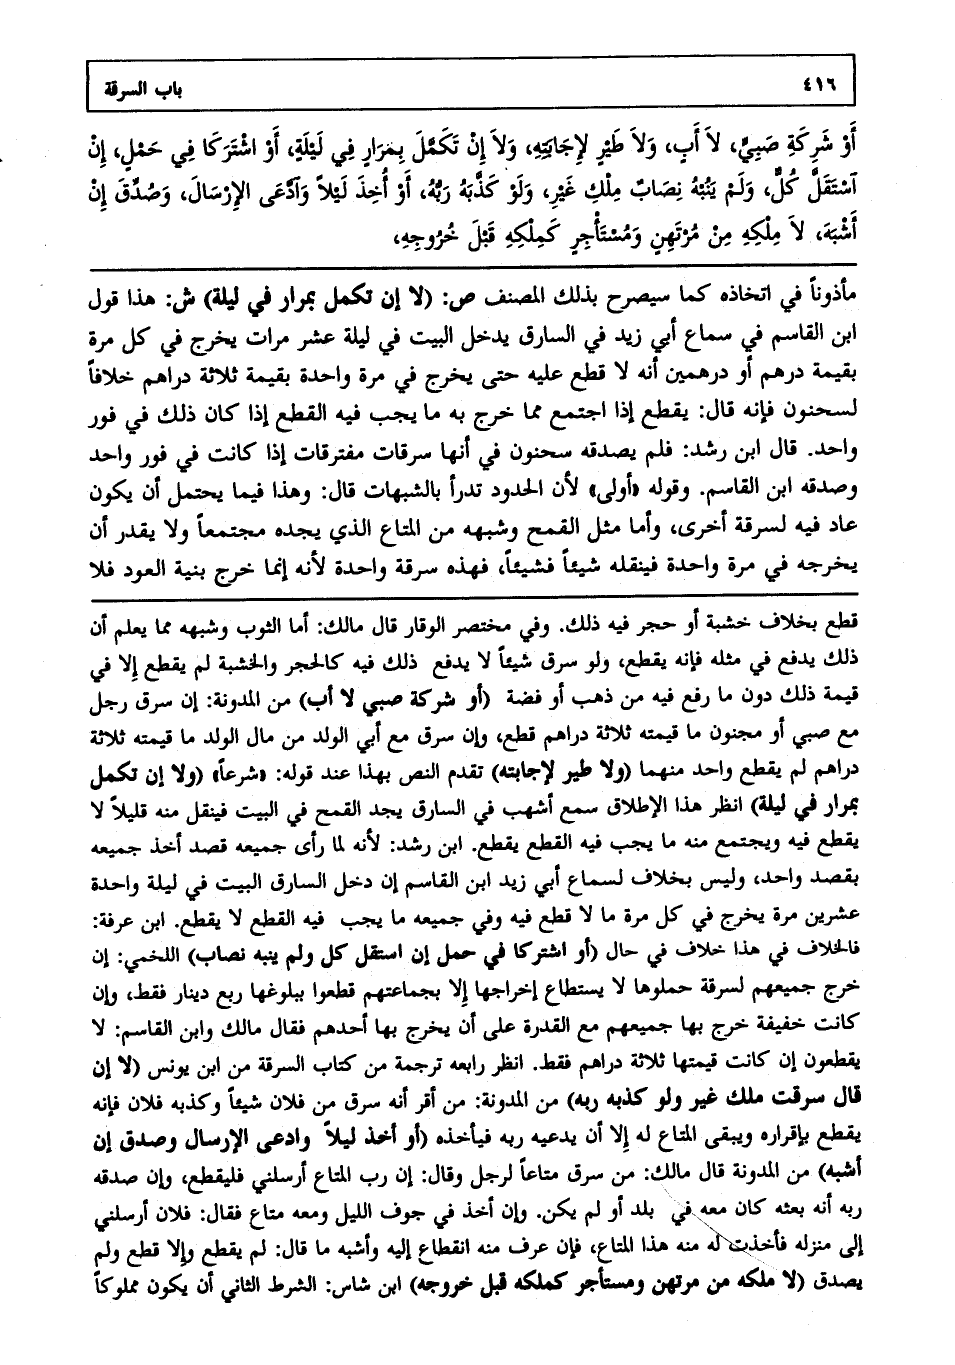 ٤١٦
باب السرقة
أَوْ شَرِكَةِ صَبِيٍّ، لاَ أَبٍ، وَلاَ طَيْرٍ لإِجَابَتِهِ، وَلاَ إِنْ تَكَمَّلَ بِمَرَارٍ فِي لَيْلَةٍ، أَوْ اشْتَرَكَا فِي حَمْلٍ، إِنْ
آسْتَقَلَّ كُلٌّ، وَلَمْ يَنُبْهُ نِصَابٌ مِلْكِ غَيْرٍ، وَلَوْ كَذَّبَهُ رَبُّهُ، أَوْ أُخِذَ لَيْلاً وَآدَّعَى الإِرْسَالَ، وَصُدِّقَ إِنْ
أَشْبَهَ، لاَ مِلْكِهِ مِنْ مُرْتَهِنٍ وَمُسْتَأْجِرٍ كَمِلْكِهِ قَبْلَ خُرُوجِهِ،
مأذوناً في اتخاذه كما سيصرح بذلك المصنف ص: (لا إن تكمل بمرار في ليلة) ش: هذا قول
ابن القاسم في سماع أبي زيد في السارق يدخل البيت في ليلة عشر مرات يخرج في كل مرة
بقيمة درهم أو درهمين أنه لا قطع عليه حتى يخرج في مرة واحدة بقيمة ثلاثة دراهم خلافاً
لسحنون فإنه قال: يقطع إذا اجتمع مما خرج به ما يجب فيه القطع إذا كان ذلك في فور
واحد. قال ابن رشد: فلم يصدقه سحنون في أنها سرقات مفترقات إذا كانت في فور واحد
وصدقه ابن القاسم. وقوله «أولى» لأن الحدود تدرأ بالشبهات قال: وهذا فيما يحتمل أن يكون
عاد فيه لسرقة أخرى، وأما مثل القمح وشبهه من المتاع الذي يجده مجتمعاً ولا يقدر أن
يخرجه في مرة واحدة فينقله شيئاً فشيئاً، فهذه سرقة واحدة لأنه إنما خرج بنية العود فلا
قطع بخلاف خشبة أو حجر فيه ذلك. وفي مختصر الوقار قال مالك: أما الثوب وشبهه مما يعلم أن
ذلك يدفع في مثله فإنه يقطع، ولو سرق شيئاً لا يدفع ذلك فيه كالحجر والخشبة لم يقطع إلا في
قيمة ذلك دون ما رفع فيه من ذهب أو فضة (أو شركة صبي لا أب) من المدونة: إن سرق رجل
مع صبي أو مجنون ما قيمته ثلاثة دراهم قطع، وإن سرق مع أبي الولد من مال الولد ما قيمته ثلاثة
دراهم لم يقطع واحد منهما (ولا طير لإجابته) تقدم النص بهذا عند قوله: «شرعاً» (ولا إن تكمل
بمرار في ليلة) انظر هذا الإطلاق سمع أشهب في السارق يجد القمح في البيت فينقل منه قليلاً لا
يقطع فيه ويجتمع منه ما يجب فيه القطع يقطع. ابن رشد: لأنه لما رأى جميعه قصد أخذ جميعه
بقصد واحد، وليس بخلاف لسماع أبي زيد ابن القاسم إن دخل السارق البيت في ليلة واحدة
عشرين مرة يخرج في كل مرة ما لا قطع فيه وفي جميعه ما يجب فيه القطع لا يقطع. ابن عرفة:
فالخلاف في هذا خلاف في حال (أو اشتركا في حمل إن استقل كل ولم ينبه نصاب) اللخمي: إن
خرج جميعهم لسرقة حملوها لا يستطاع إخراجها إلا بجماعتهم قطعوا ببلوغها ربع دينار فقط، وإن
كانت خفيفة خرج بها جميعهم مع القدرة على أن يخرج بها أحدهم فقال مالك وابن القاسم: لا
يقطعون إن كانت قيمتها ثلاثة دراهم فقط. انظر رابعه ترجمة من كتاب السرقة من ابن يونس (لا إن
قال سرقت ملك غير ولو كذبه ربه) من المدونة: من أقر أنه سرق من فلان شيئاً وكذبه فلان فإنه
يقطع بإقراره ويبقى المتاع له إلا أن يدعيه ربه فيأخذه (أو أخذ ليلاً وادعى الإرسال وصدق إن
أشبه) من المدونة قال مالك: من سرق متاعاً لرجل وقال: إن رب المتاع أرسلني فليقطع، وإن صدقه
ربه أنه بعثه كان معه في بلد أو لم يكن. وإن أخذ في جوف الليل ومعه متاع فقال: فلان أرسلني
إلى منزله فأخذت له منه هذا المتاع، فإن عرف منه انقطاع إليه وأشبه ما قال: لم يقطع وإلا قطع ولم
يصدق (لا ملكه من مرتهن ومستأجر كملكه قبل خروجه) ابن شاس: الشرط الثاني أن يكون مملوكاً